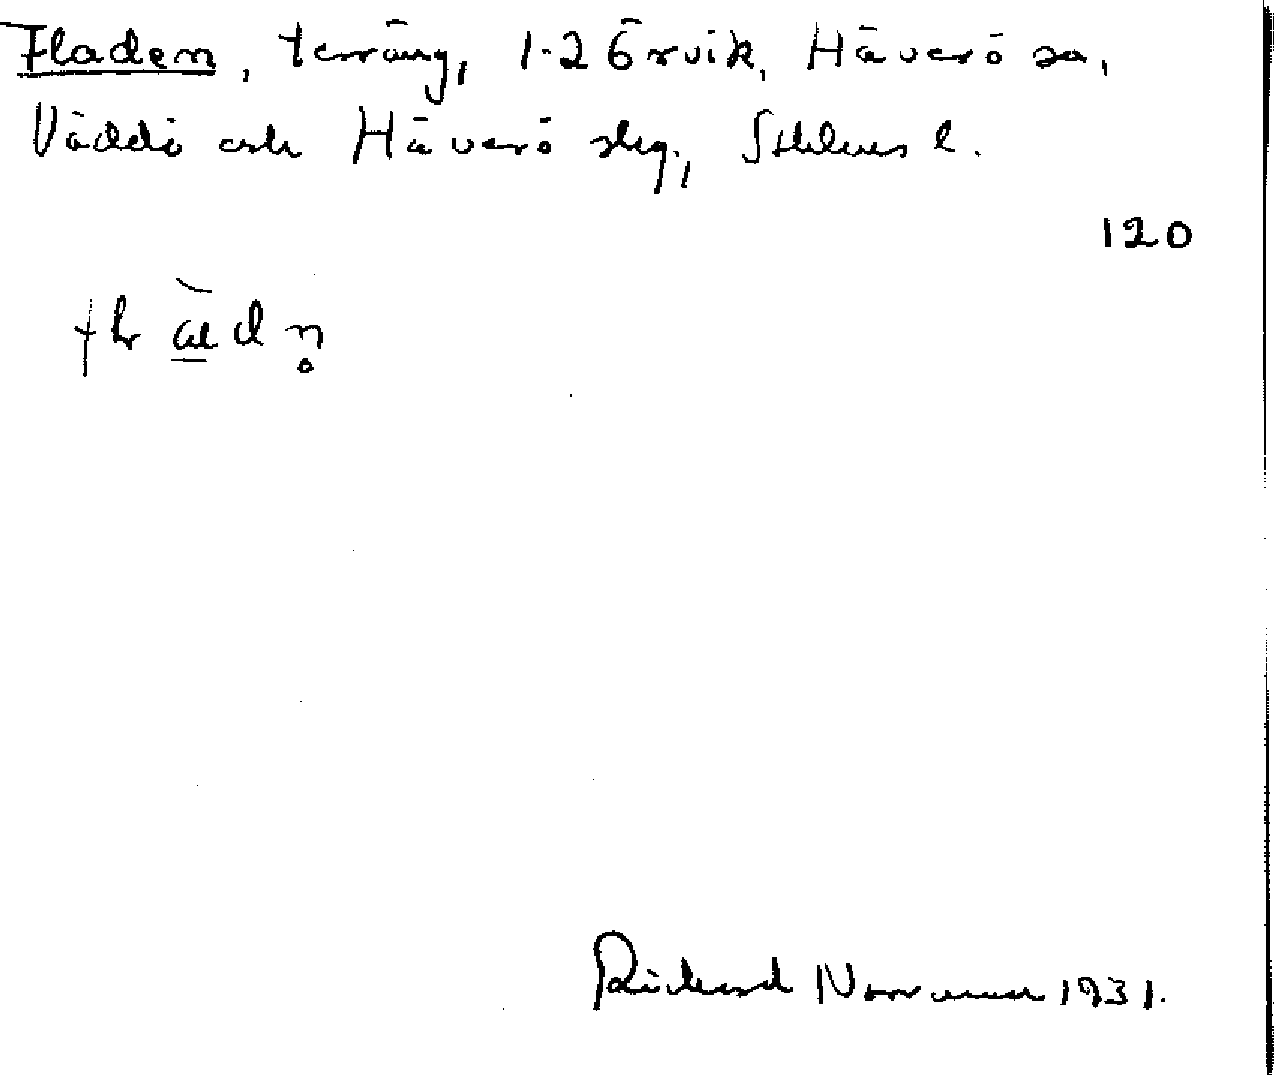 Fladen, terräng, 1-2 Örvik, Häverö sn,
Väddö och Häverö skg., Sthlms l.
120
Rickard Norrman 1931.